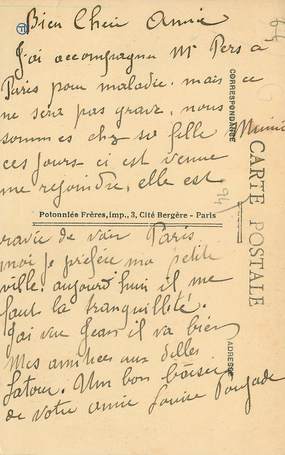 Bien Cheir Amie
J'ai accompagner Mr Pers a
Paris pour maladie. mais ce
ne sera pas grave, nous
sommes chez sa fille Mimi
ces jours-ci est venue
me rejoindre, elle est
Potonniée Frères, imp., 3, Cité Bergère - Paris
ravie de voir Paris
moi je préfère ma petite
ville aujourd'hui il me
faut la tranquillité.
J'ai vue Jean il va bien
Mes amitiées aux delles
Latour. Un bon baiser
de votre amie Louise
CORRESPONDANCE
CARTE POSTALE
ADRESSE
94